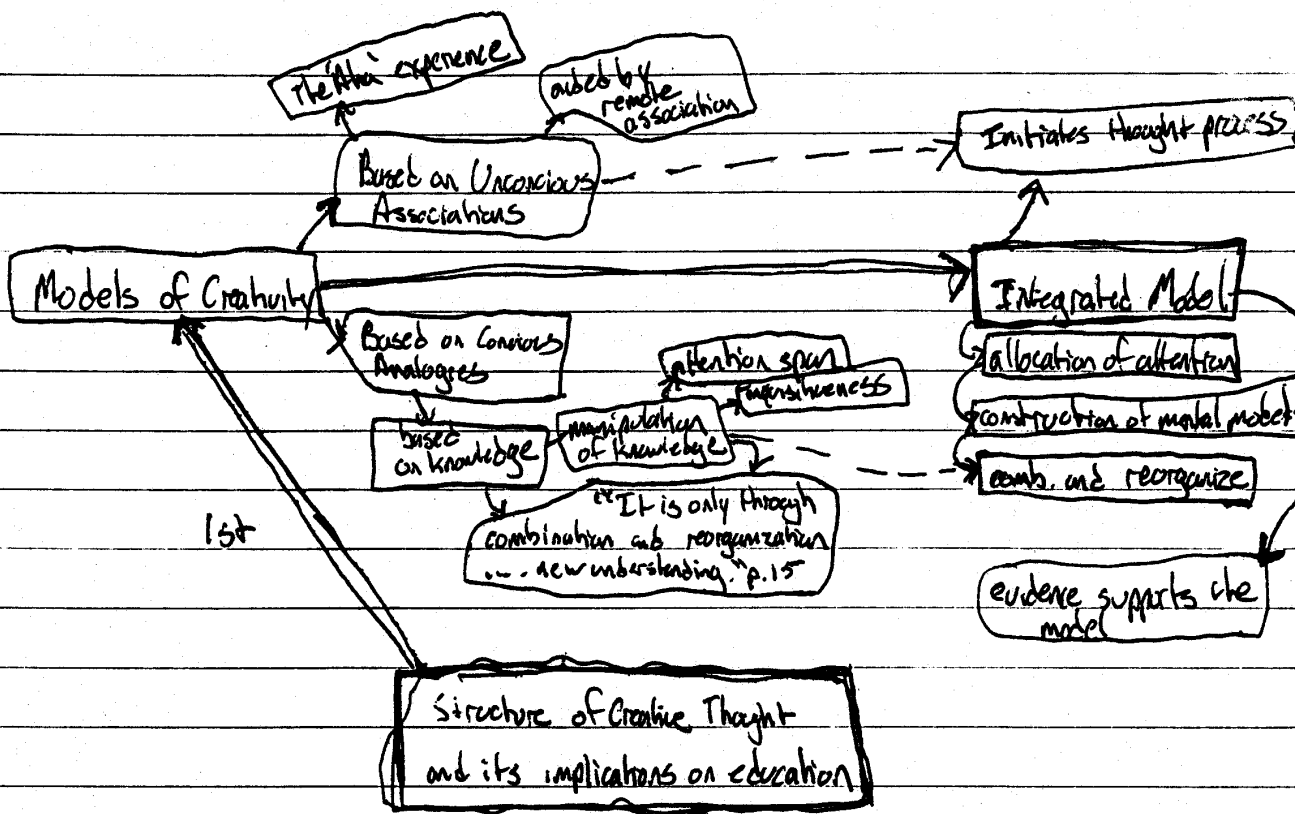 The 'Aha' experience
aided by
remote
association
Initiates thought process
Based on Unconcious
Associations
Models of Creativity
Integrated Model
Based on Concious
Analogies
attention span
allocation of attention
based
on knowledge
manipulation
of knowledge
construction of mental models
comb. and reorganize
"It is only through
combination and reorganization
.... new understanding." p.15
1st
evidence supports the
model
Structure of Creative Thought
and its implications on education